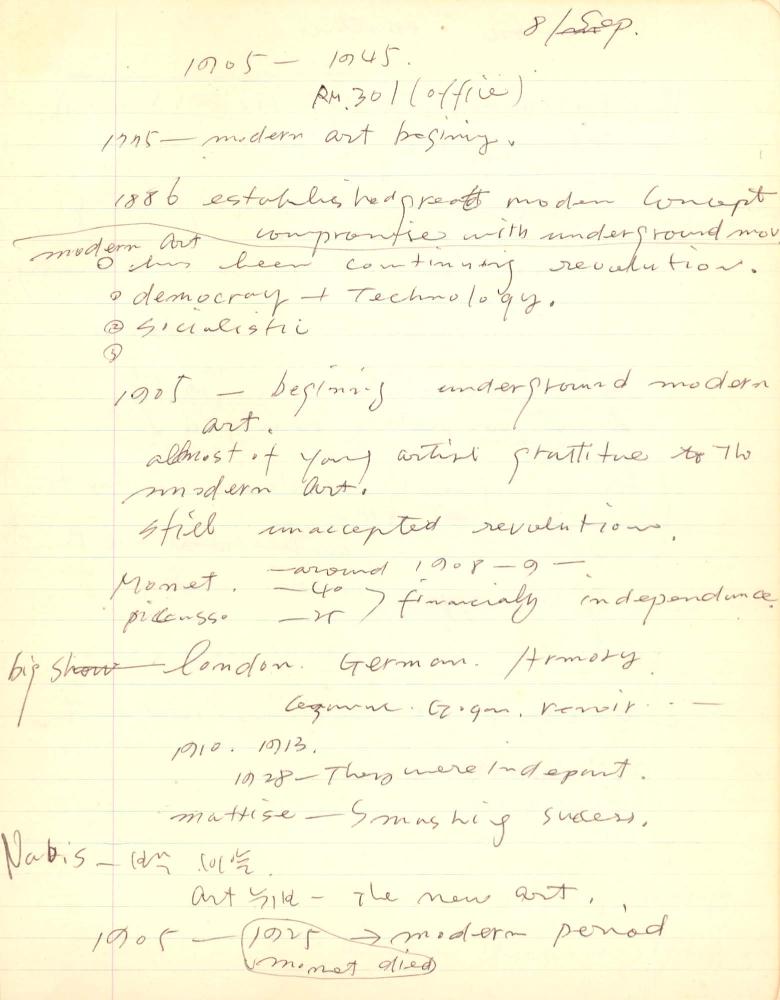 8/Sep.
1905 — 1945.
RM.301 (office)
— modern art begining.
1886 established great modern Concept
modern Art compromise with underground mov
o has been continuing revolution.
o democracy + Technology.
② Socialistic
③
1905 — begining underground modern
art.
almost of young artist grattitue to
modern Art.
still unaccepted revolution.
— around 1908 — 9 —
Monet. — 40
piccusso — 25 > financialy independance.
big show — London. German. /Armory
Cezanne. Gogan. renoir . . . —
1910. 1913.
1928 — They were Indepant.
mattise — Smashing success.
Nabis —
Art — The new art.
1905 — 1925 → modern period
monet died